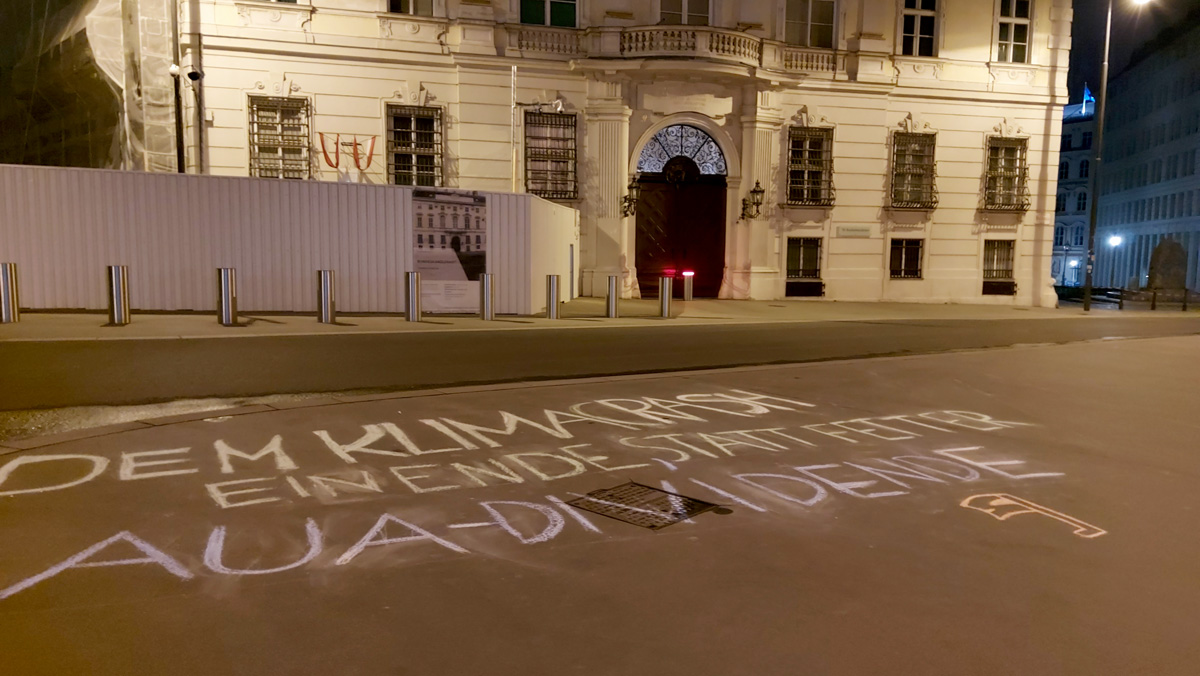 DEM KLIMACRASH
EIN ENDE STATT FETTER
AUA-DIVIDENDE